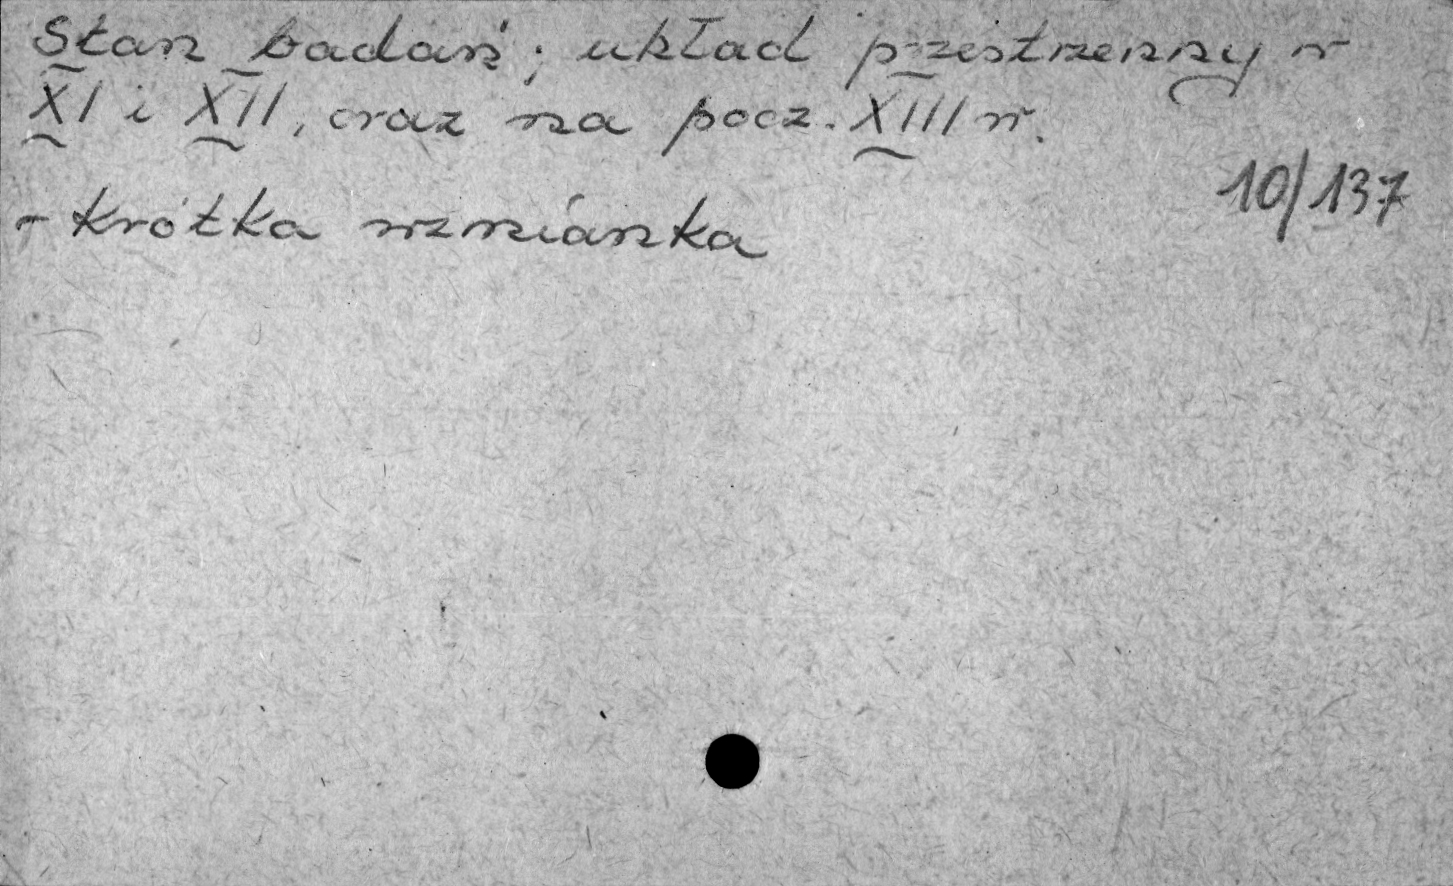 Stan badań; układ przestrzenny w
XI i XII, oraz na pocz. XIII w.
10/137
- krótka wzmianka